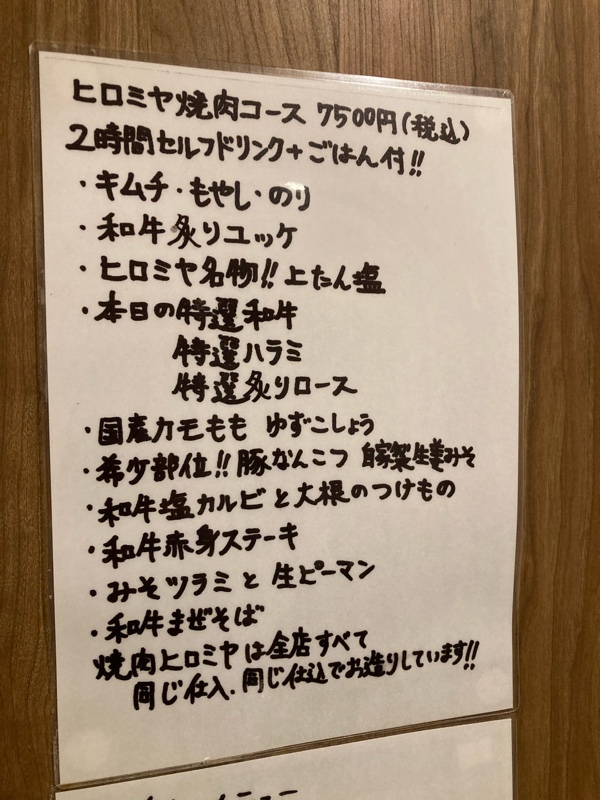 ヒロミヤ焼肉コース 7500円(税込)
2時間セルフドリンク+ごはん付!!
・キムチ・もやし・のり
・和牛炙りユッケ
・ヒロミヤ名物!!上たん塩
・本日の特選和牛
特選ハラミ
特選炙りロース
・国産カモもも ゆずこしょう
・希少部位!!豚なんこつ 自家製生姜みそ
・和牛塩カルビと大根のつけもの
・和牛赤身ステーキ
・みそツラミと生ピーマン
・和牛まぜそば
焼肉ヒロミヤは全店すべて
同じ仕入、同じ仕込でお造りしています!!